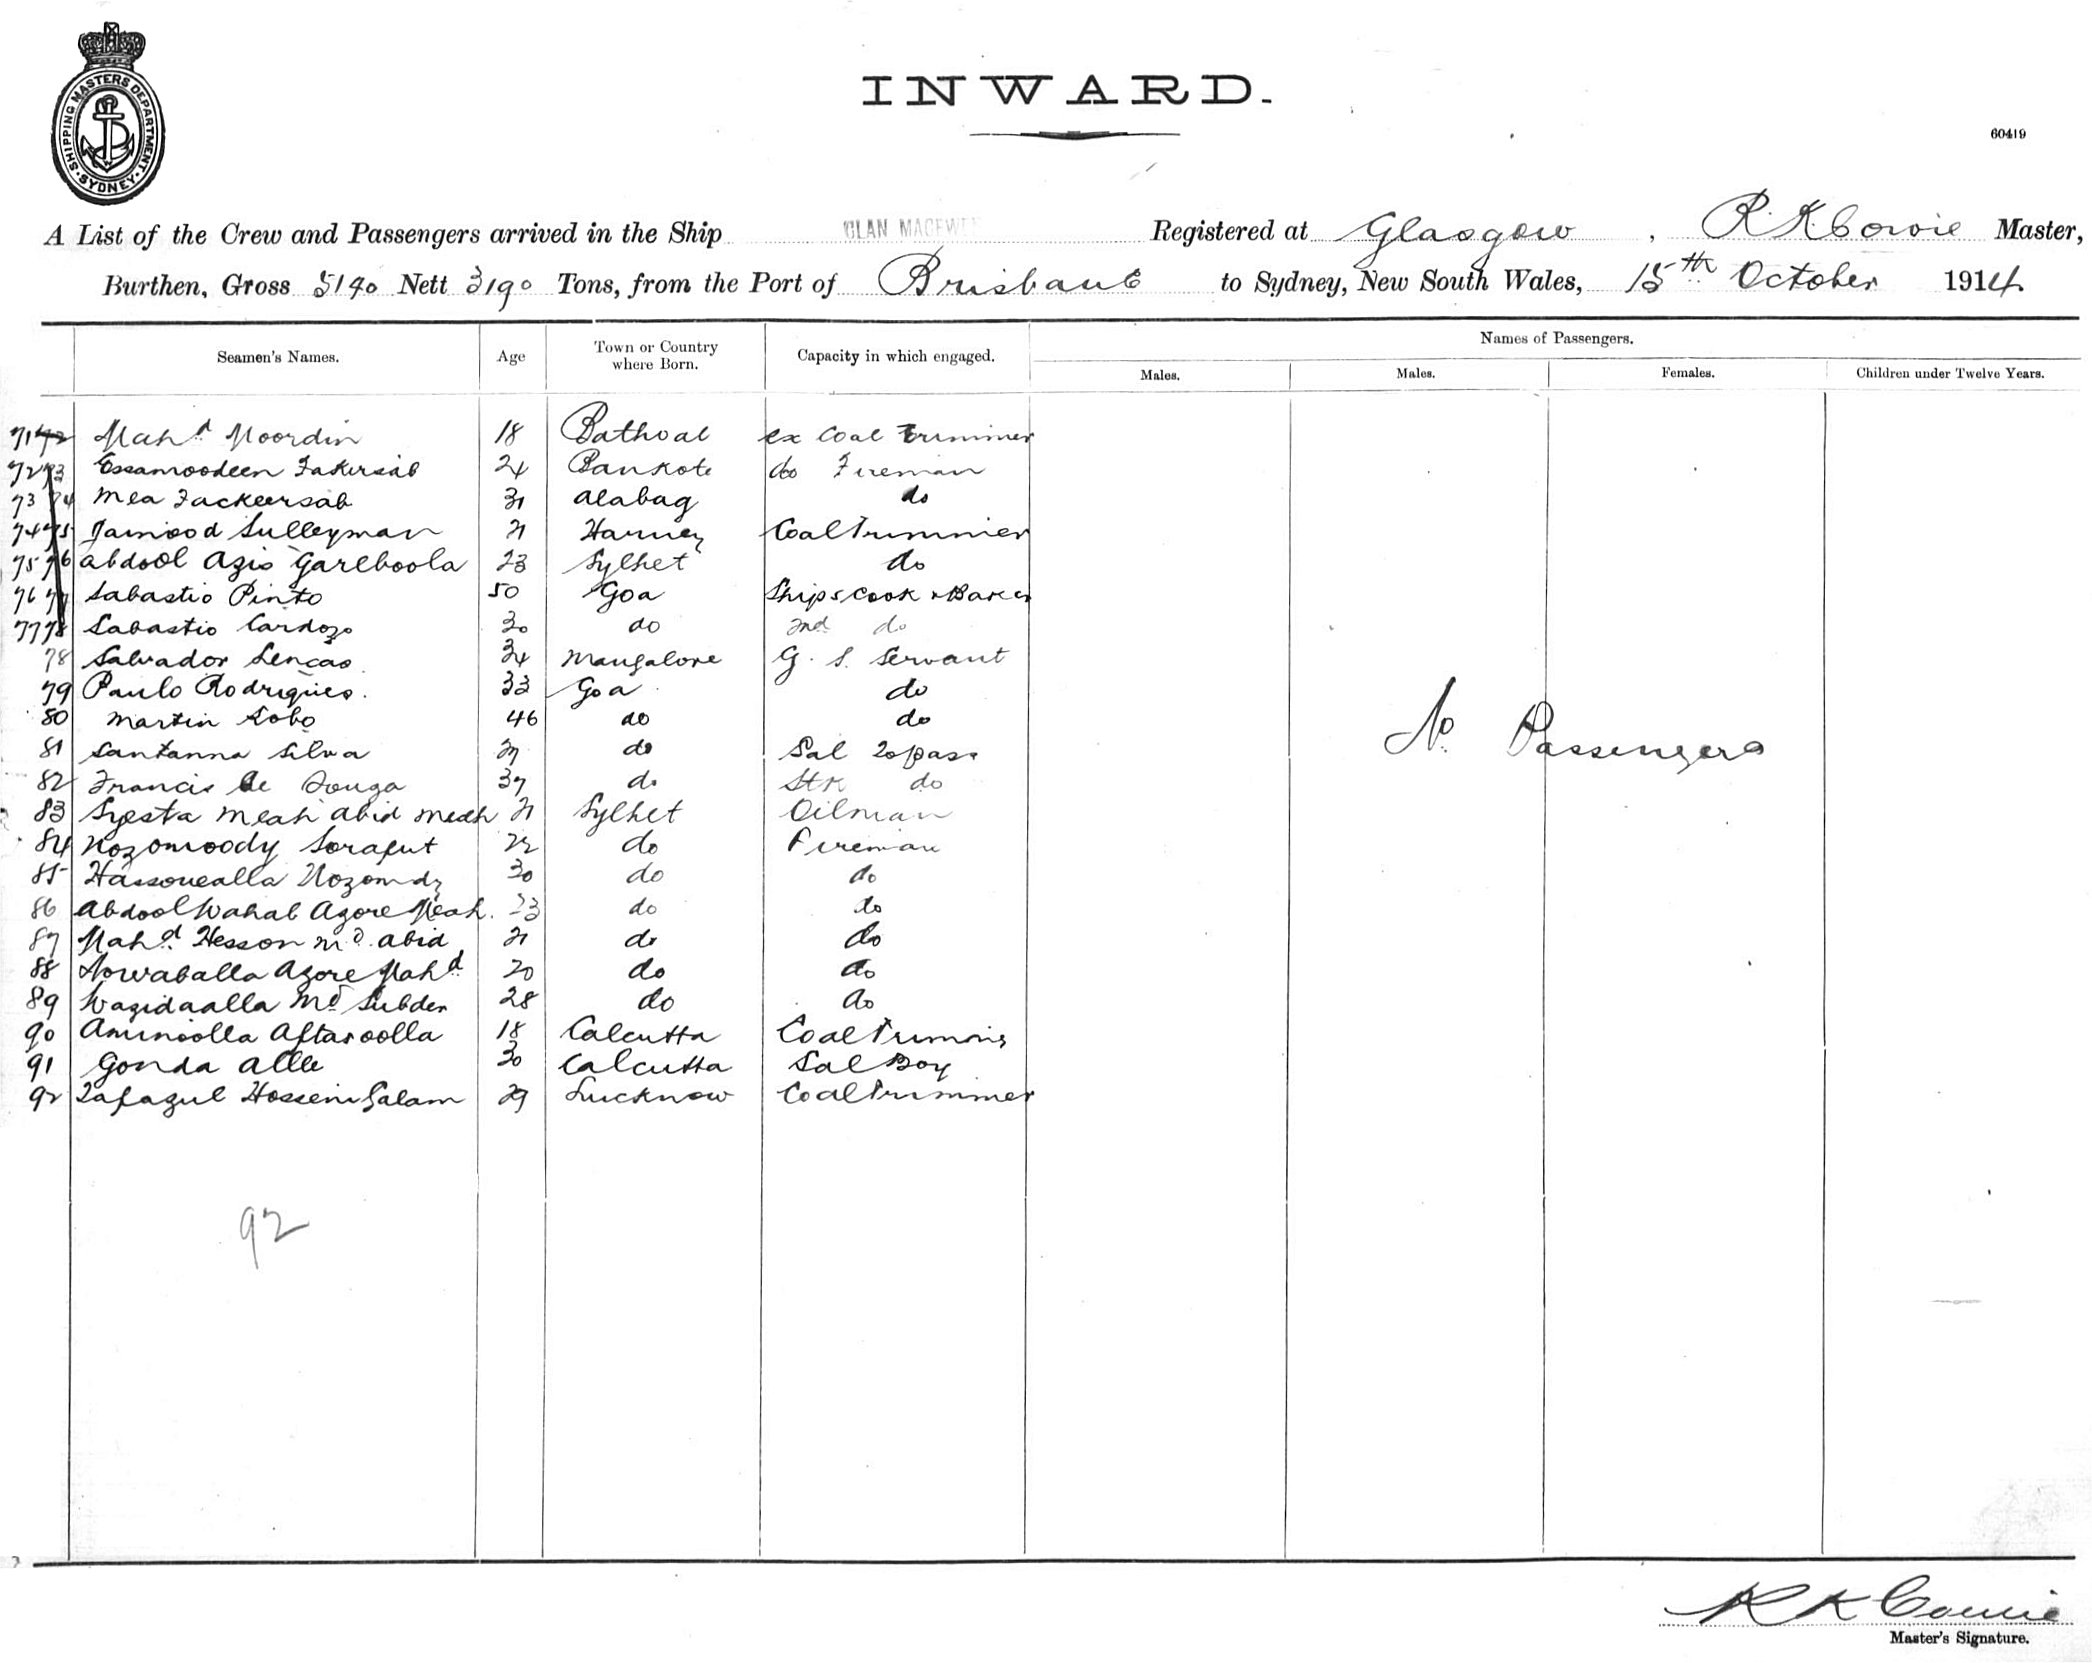 SHIPPING MASTERS DEPARTMENT. SYDNEY.
INWARD.
60419
A List of the Crew and Passengers arrived in the Ship CLAN MACEWEN Registered at Glasgow, R. K. Cowie Master,
Burthen, Gross 5140 Nett 3190 Tons, from the Port of Brisbane to Sydney, New South Wales, 15th October 1914
Names of Passengers.
Seamen's Names. Age Town or Country where Born. Capacity in which engaged. Males. Males. Females. Children under Twelve Years.
71 72 Mahd Noordin 18 ex Coal Trimmer
72 73 Essamoodeen Fakirsab 24 Bankote do Fireman
73 74 Mea Fackeersab 31 Alabag do
74 75 Sulleyman 21 Harney Coal Trimmer
75 76 Abdool Azis Gareboola 23 Sylhet do
76 77 Sabastio Pinto 50 Goa Ships Cook & Baker
77 78 Sabastio Cardozo 30 do 2nd do
78 Salvador Lencas 34 Mangalore G. S. Servant
79 Paulo Rodrigues. 33 Goa do
80 Martin Lobo 46 do do
81 Santanna Silva do Sal Topass
82 Francis De Souza 37 do Str do
83 Syesta Meah Abid Meah 21 Sylhet Oilman
84 Nozomoody Sorafut 22 do Fireman
85 Hassonealla Nozomdy 30 do do
86 Abdool Wahab Azore Meah. 23 do do
87 Mahd Hesson Md. Abid 21 do do
88 Nowaballa Azore Mahd 20 do do
89 Wazidaalla Md Subder 28 do do
90 Aminoolla Aftaroolla 18 Calcutta Coal Trimmer
91 Gonda Alle 30 Calcutta Sal Boy
92 Tafazul Hossein Galam 29 Lucknow Coal Trimmer
No Passengers
92
R K Cowie
Master's Signature.